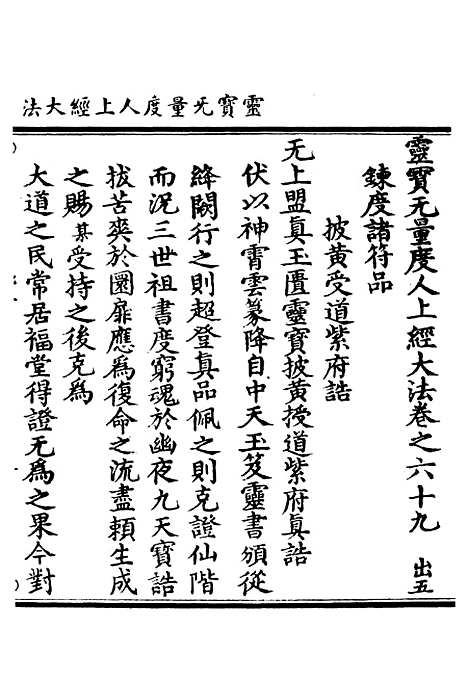 靈寳无量度人上經大法
靈寳无量度人上經大法卷之六十九　出五
鍊度諸符品
披黃受道紫府誥
无上盟真玉匱靈寳披黃授道紫府真誥
伏以神霄雲篆降自中天玉笈靈書頒從
絳闕行之則超登真品佩之則克證仙階
而況三世祖書度窮魂於幽夜九天寳誥
拔苦爽於圜扉應爲復命之流盡賴生成
之賜某受持之後克爲
大道之民常居福堂得證无爲之果今對